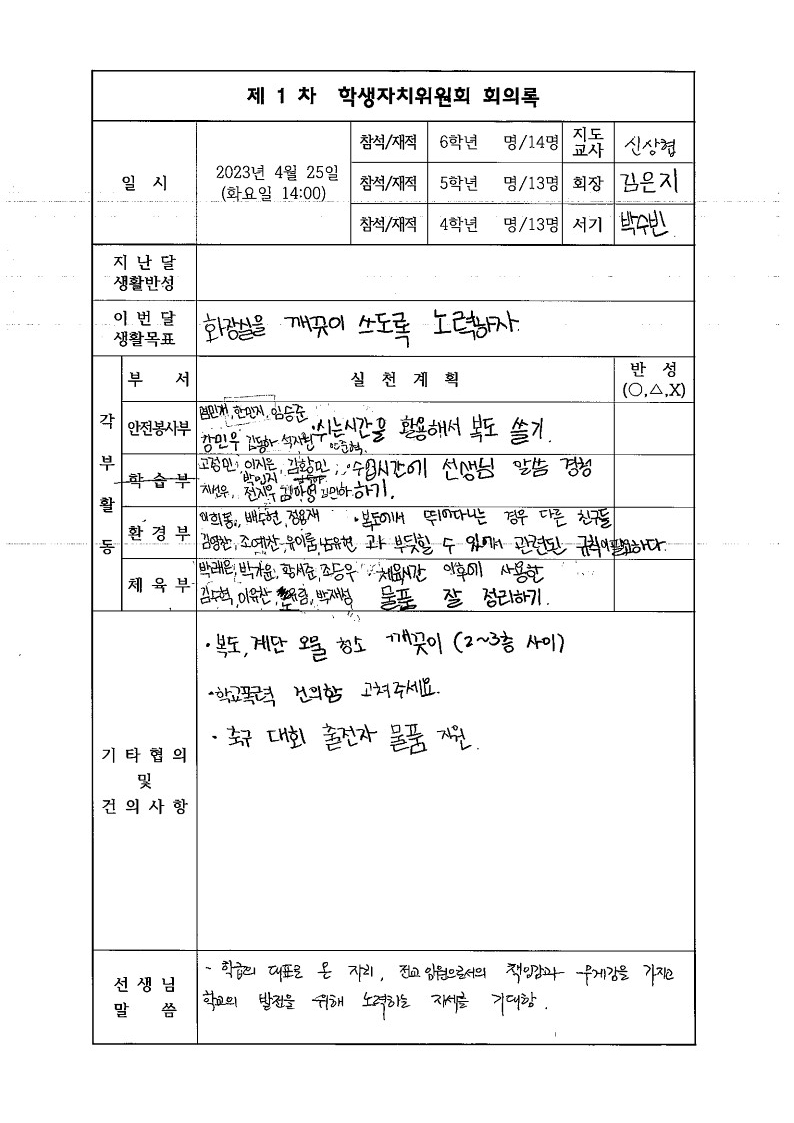 제 1 차 학생자치위원회 회의록
일 시
2023년 4월 25일
(화요일 14:00)
참석/재적 6학년 명/14명 지도교사 신상협
참석/재적 5학년 명/13명 회장 김은지
참석/재적 4학년 명/13명 서기 박수빈
지 난 달
생활반성
이 번 달
생활목표
화장실을 깨끗이 쓰도록 노력하자.
각 부 활 동
부 서 실 천 계 획 반 성
(○,△,X)
안전봉사부
한민지, 임승준
강민우 ·쉬는시간을 활용해서 복도 쓸기.
학 습 부
고정민, 이지은, 김황민, ·수업시간에 선생님 말씀 경청
전지우 하기.
환 경 부
배수현, 정용재 ·복도에서 뛰어다니는 경우 다른 친구들
김영찬, 조예찬, 유이룸, 남유현 과 부딪힐 수 있어서 관련된 규칙이 필요하다.
체 육 부
박래은, 박가윤, 황서준, 조승우 ·체육시간 이후에 사용한
김수혁, 이유찬, 박재성 물품 잘 정리하기.
기 타 협 의
및
건 의 사 항
·복도, 계단 오물 청소 깨끗이 (2~3층 사이)
·학교폭력 건의함 고쳐주세요.
·축구 대회 출전자 물품 지원.
선 생 님
말 씀
- 학급의 대표로 온 자리, 전교 임원으로서의 책임감과 무게감을 가지고
학교의 발전을 위해 노력하는 자세를 기대함.